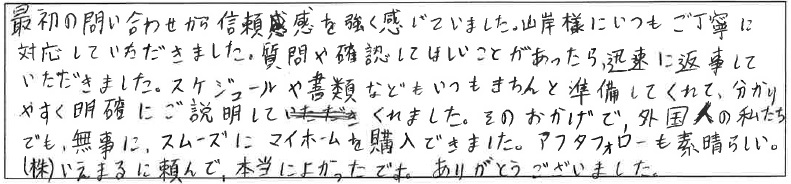 最初の問い合わせから信頼感を強く感じていました。山岸様にいつもご丁寧に
対応していただきました。質問や確認してほしいことがあったら、迅速に返事して
いただきました。スケジュールや書類などもいつもきちんと準備してくれて、分かり
やすく明確にご説明してくれました。そのおかげで、外国人の私たち
でも、無事に、スムーズにマイホームを購入できました。アフタフォローも素晴らしい。
(株)いえまるに頼んで、本当によかったです。ありがとうございました。